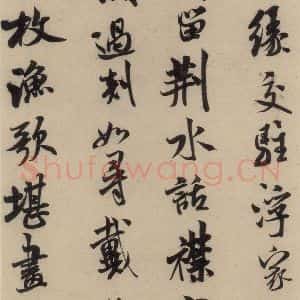 緣交駐浮家
留荆水話襟
過剡如尋戴
枚漁歌堪畫
Shufawang.CN